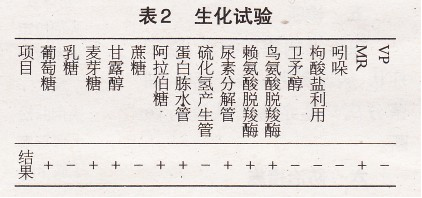 表2 生化试验
项目 葡萄糖 乳糖 麦芽糖 甘露醇 蔗糖 阿拉伯糖 蛋白胨水管 硫化氢产生管 尿素分解管 赖氨酸脱羧酶 鸟氨酸脱羧酶 卫矛醇 枸酸盐利用 吲哚 MR VP
结果 + - + + - + + - + + + - - - + -